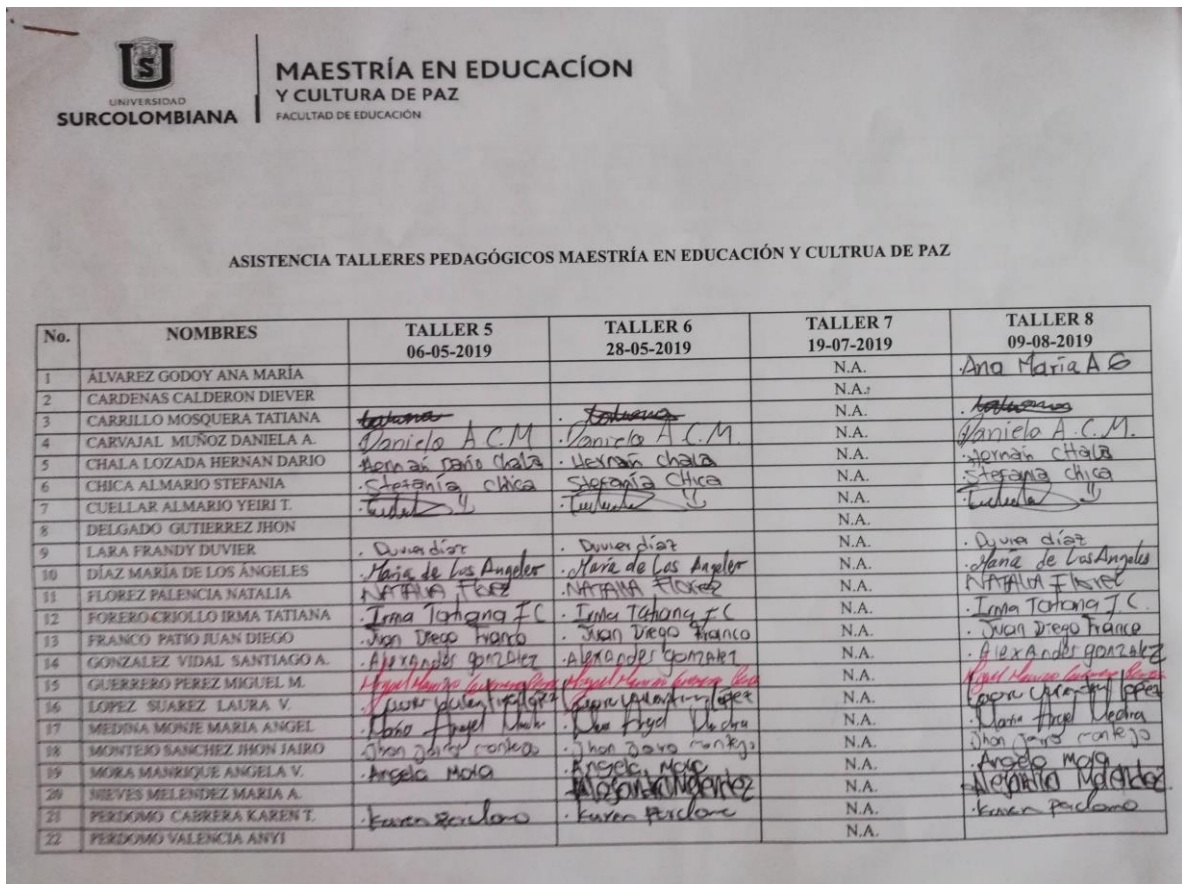 UNIVERSIDAD
SURCOLOMBIANA
MAESTRÍA EN EDUCACÍON
Y CULTURA DE PAZ
FACULTAD DE EDUCACIÓN
ASISTENCIA TALLERES PEDAGÓGICOS MAESTRÍA EN EDUCACIÓN Y CULTRUA DE PAZ
No. NOMBRES TALLER 5 06-05-2019 TALLER 6 28-05-2019 TALLER 7 19-07-2019 TALLER 8 09-08-2019
1 ÁLVAREZ GODOY ANA MARÍA N.A. Ana María A G
2 CARDENAS CALDERON DIEVER N.A.
3 CARRILLO MOSQUERA TATIANA N.A.
4 CARVAJAL MUÑOZ DANIELA A. Daniela A C.M Daniela A.C.M. N.A. Daniela A.C.M.
5 CHALA LOZADA HERNAN DARIO Hernán Darío Chala Hernán Chala N.A. Hernán CHala
6 CHICA ALMARIO STEFANIA Stefanía CHica Stefanía CHica N.A. Stefania Chica
7 CUELLAR ALMARIO YEIRI T. N.A.
8 DELGADO GUTIERREZ JHON N.A.
9 LARA FRANDY DUVIER Duvier díaz Duvier díaz N.A. Duvier díaz
10 DÍAZ MARÍA DE LOS ÁNGELES María de Los Angeles María de Los Angeles N.A. María de Los Angeles
11 FLOREZ PALENCIA NATALIA NATALIA Florez NATALIA Florez N.A. NATALIA Florez
12 FORERO CRIOLLO IRMA TATIANA Irma Tatiana F C Irma Tatiana F C N.A. Irma Tatiana F C.
13 FRANCO PATIO JUAN DIEGO Juan Diego Franco Juan Diego Franco N.A. Juan Diego Franco
14 GONZALEZ VIDAL SANTIAGO A. Alexander gonzalez Alexander gonzalez N.A. Alexander gonzalez
15 GUERRERO PEREZ MIGUEL M. N.A.
16 LOPEZ SUAREZ LAURA V. N.A.
17 MEDINA MONJE MARIA ANGEL N.A. María Angel Medina
18 MONTEJO SANCHEZ JHON JAIRO Jhon jairo montejo Jhon jairo montejo N.A. Jhon jairo montejo
19 MORA MANRIQUE ANGELA V. Angela Mora Angela Mora N.A. Angela mora
20 NIEVES MELENDEZ MARIA A. Alejandra Melendez N.A. Alejandra Melendez
21 PERDOMO CABRERA KAREN T. Karen Perdomo Karen Perdomo N.A. Karen Perdomo
22 PERDOMO VALENCIA ANYI N.A.